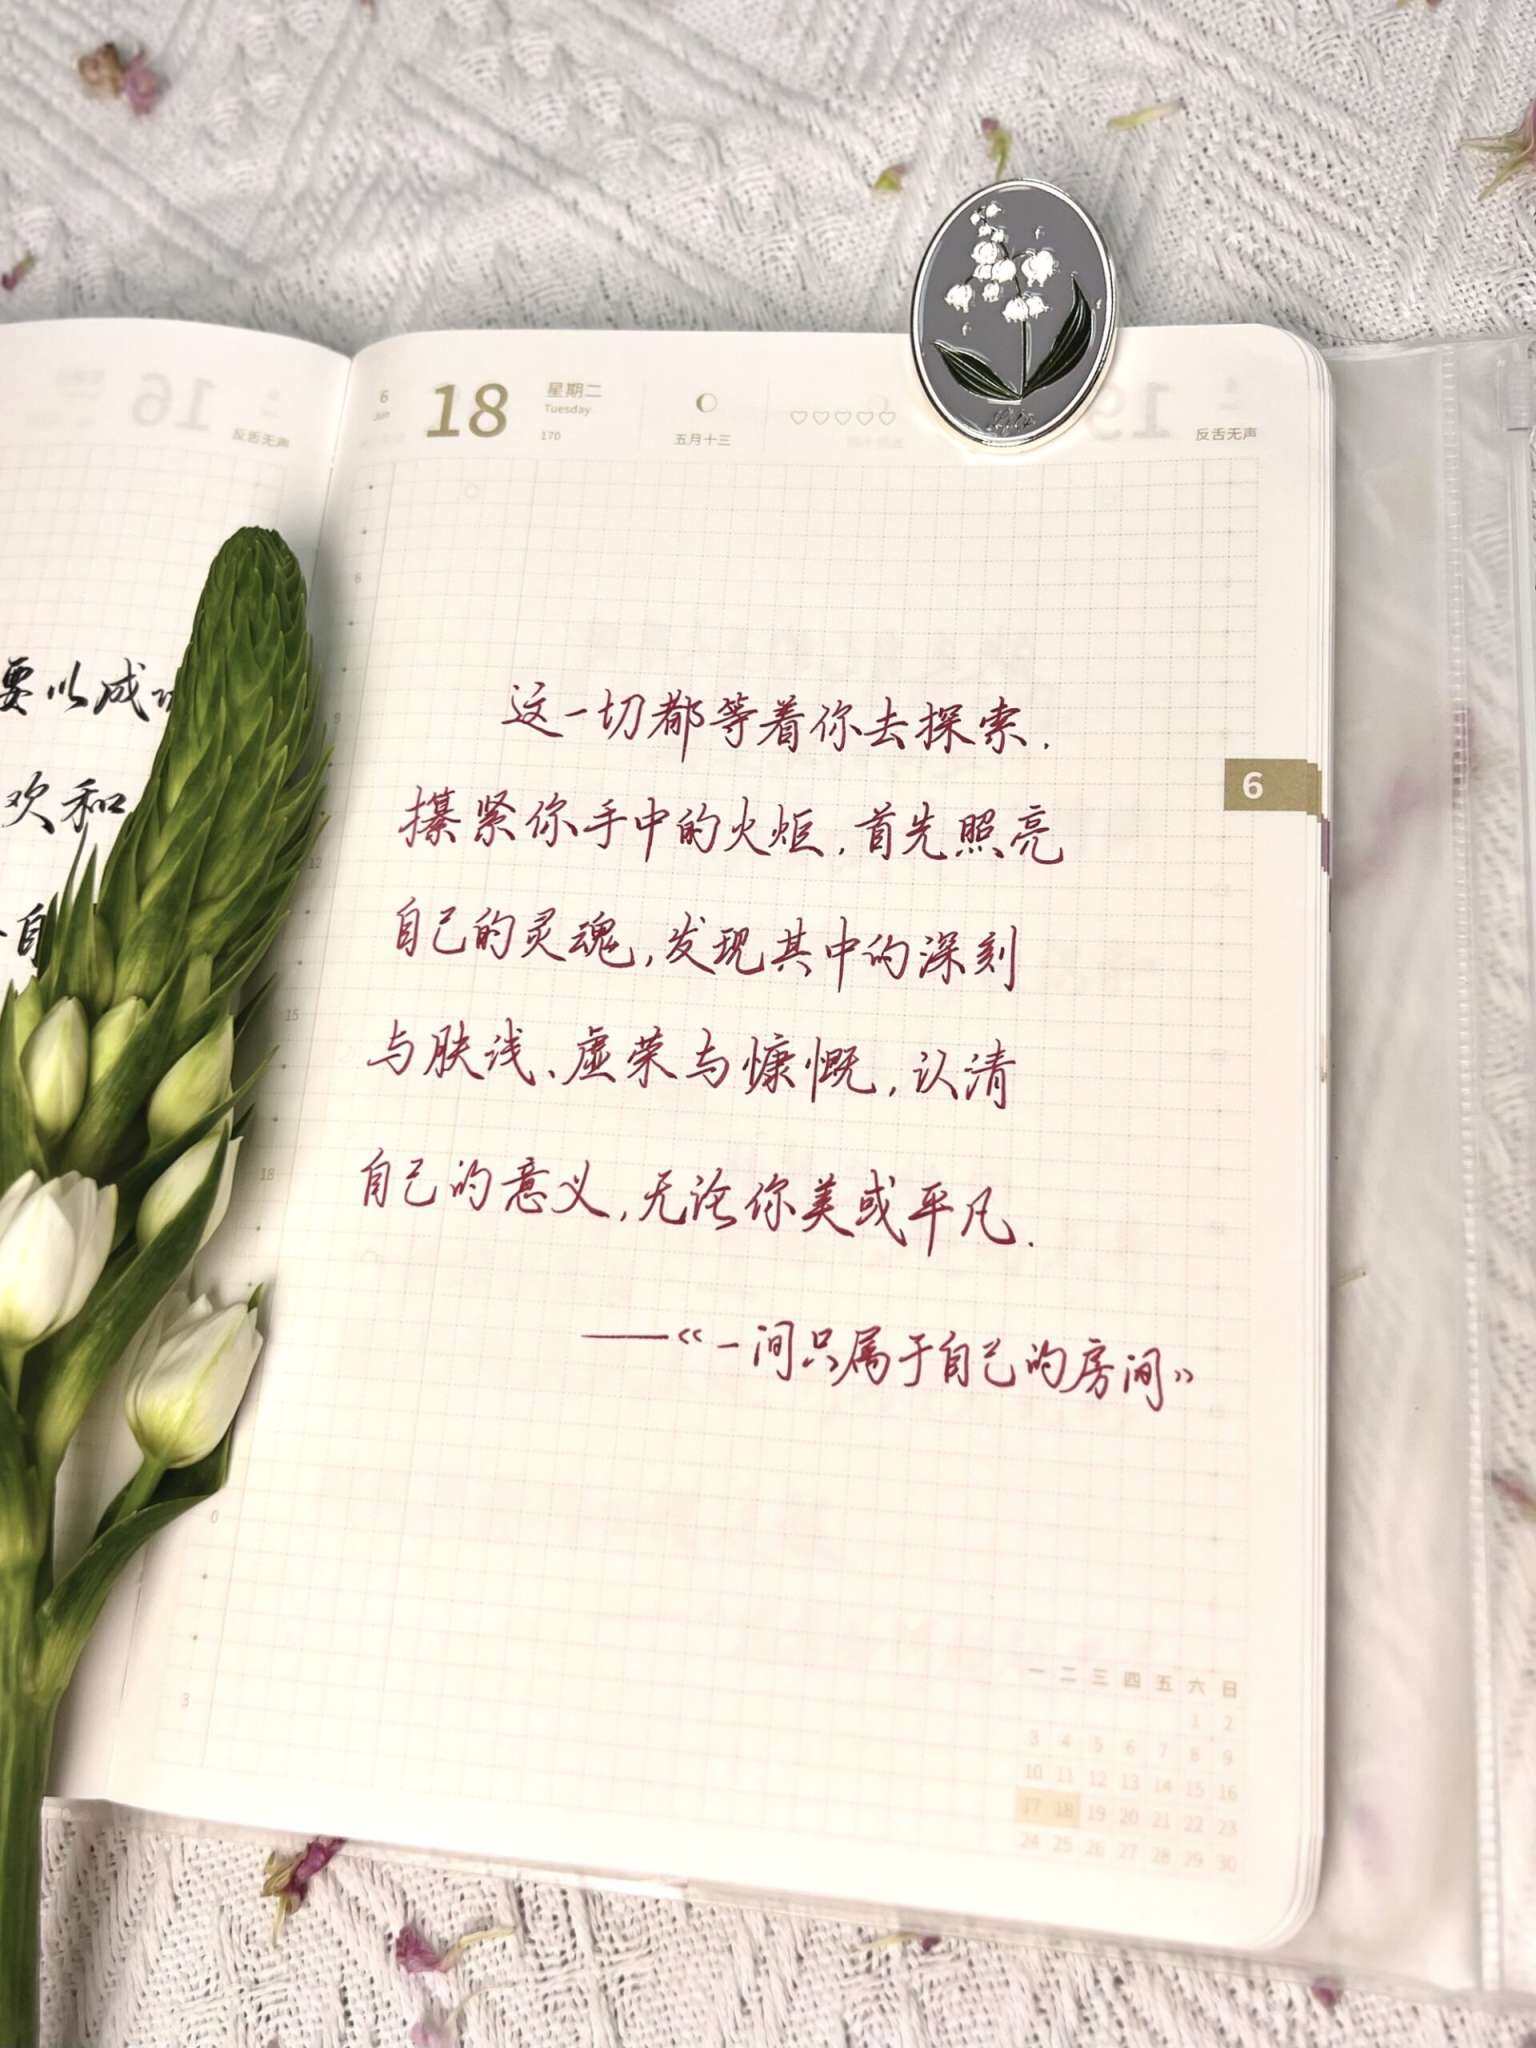 16
反舌无声
6
Jun
18
星期二
Tuesday
170
五月十三
19
反舌无声
要以成功
欢和
自
6
8
9
12
15
18
0
3
这一切都等着你去探索.
攥紧你手中的火炬,首先照亮
自己的灵魂,发现其中的深刻
与肤浅、虚荣与慷慨,认清
自己的意义,无论你美或平凡.
——《一间只属于自己的房间》
一 二 三 四 五 六 日
1 2
3 4 5 6 7 8 9
10 11 12 13 14 15 16
17 18 19 20 21 22 23
24 25 26 27 28 29 30